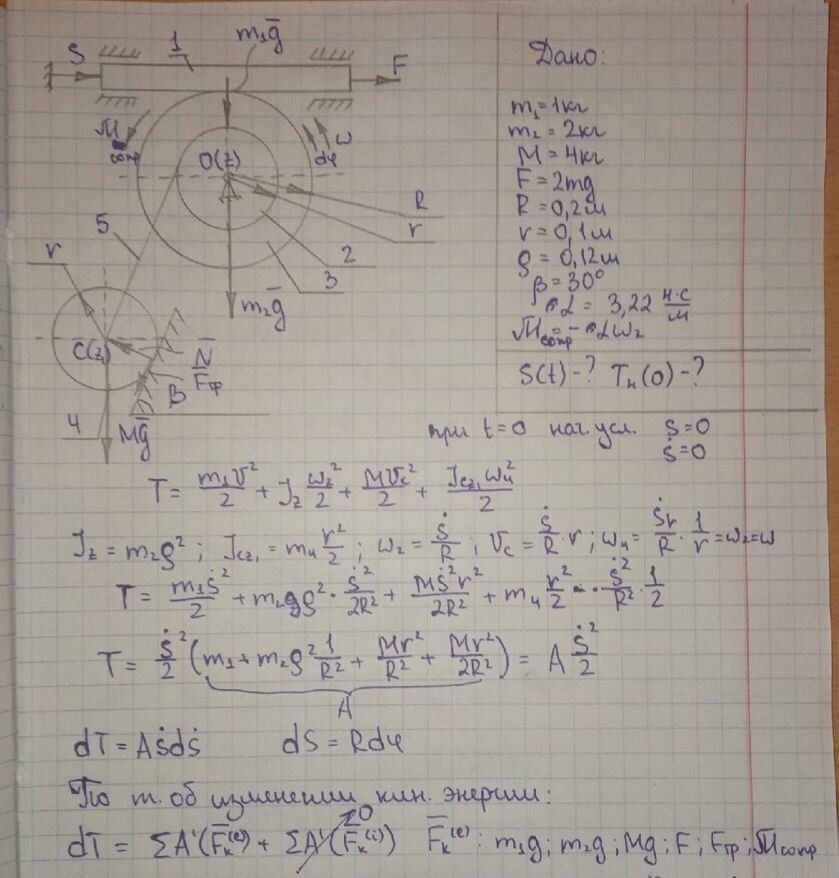 S 1 m₁g̅ F
M сопр O(z) ω dφ
R
r
5
2
3
r
m₂g̅
C(z₁) N̅
F̅тр
β
4
Mg̅
Дано:
m₁ = 1кг
m₂ = 2кг
M = 4кг
F = 2mg
R = 0,2м
r = 0,1м
ρ = 0,12м
β = 30°
α = 3,22 н·с/м
Mсопр = -αω₂
S(t) - ? Tн(0) - ?
при t=0 нач. усл. s=0
ṡ=0
T = m₁V²/2 + J_z ω₂²/2 + MV_c²/2 + J_cz₁ω₄²/2
J_z = m₂ρ²; J_cz₁ = m₄ r²/2; ω₂ = ṡ/R; V_c = ṡ/R · r; ω₄ = ṡr/R · 1/r = ω₂ = ω
T = m₁ṡ²/2 + m₂ρ² · ṡ²/2R² + Mṡ²r²/2R² + m₄ r²/2 · ṡ²/R² · 1/2
T = ṡ²/2 (m₁ + m₂ρ² 1/R² + Mr²/R² + Mr²/2R²) = A ṡ²/2
A
dT = Aṡdṡ dS = Rdφ
По т. об изменении кин. энергии:
dT = ΣA'(F̅ₖ⁽ᵉ⁾) + ΣA'(F̅ₖ⁽ⁱ⁾) 0 F̅ₖ⁽ᵉ⁾: m₁g; m₂g; Mg; F; Fтр; Mсопр